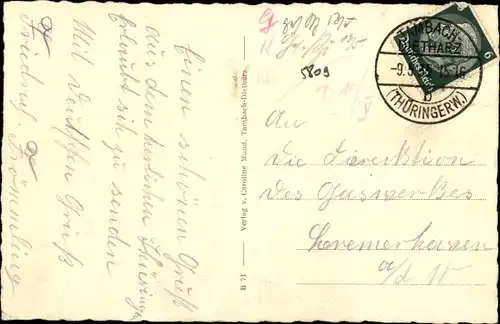 Einen schönen Gruß
aus dem herrlichen Thüringen
Erlaubt sich zu senden
Mit deutschen Gruß
Friedrich Frömmling
B 71 Verlag v. Caroline Mund, Tambach-Dietharz
5809
TAMBACH-
DIETHARZ
15-16
b
(THÜRINGERW.)
Deutsches Reich
6
An
Die Direktion
des Gaswerkes
Bremerhaven
a/d W